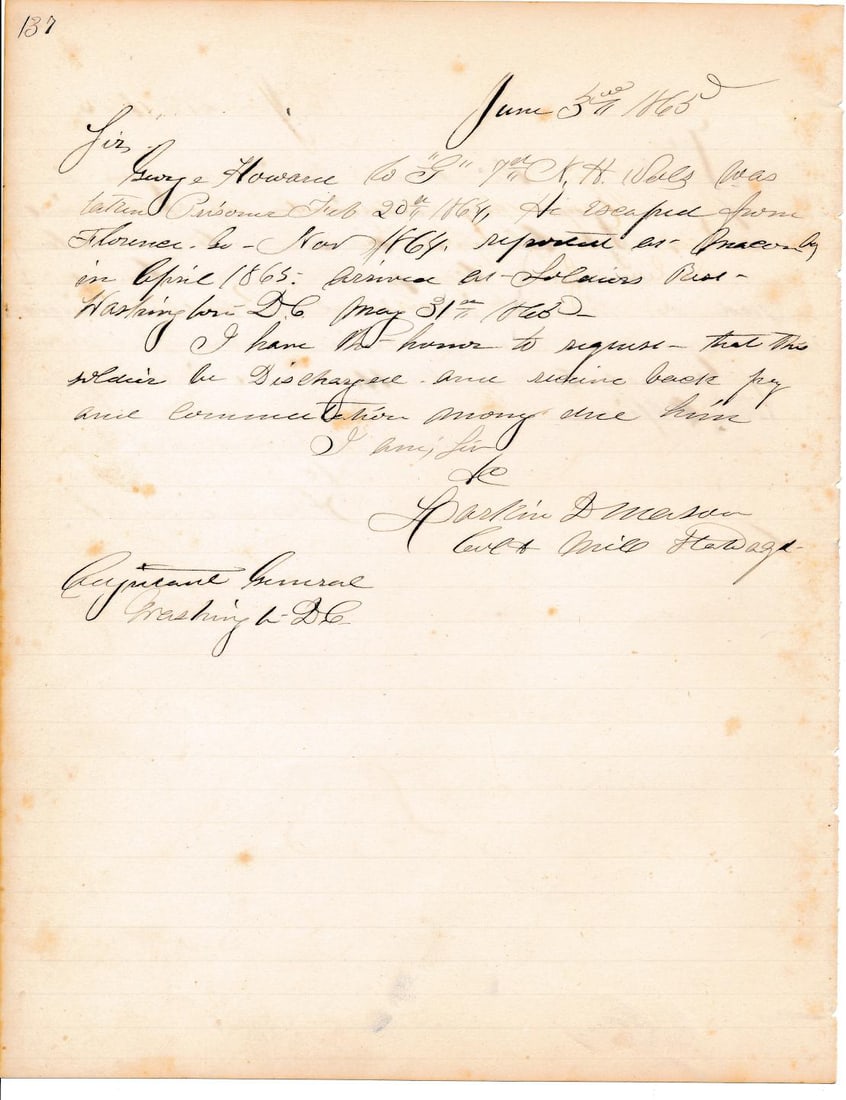 137
June 3rd 1865
Sir,
George Howard Co "G" 7th N. H. Vols was
taken Prisoner Feb 20th 1864, He Escaped from
Florence. - Nov 1864. reported at Macon Ga
in April 1865. arrived at Soldiers Rest -
Washington D.C. May 31st 1865 -
I have the honor to request - that this
soldier be Discharged and receive back pay
and commutation money due him
I am, Sir
&c
Larkin D Mason
Col & Mil State Agt -
Adjutant General
Washington D.C.